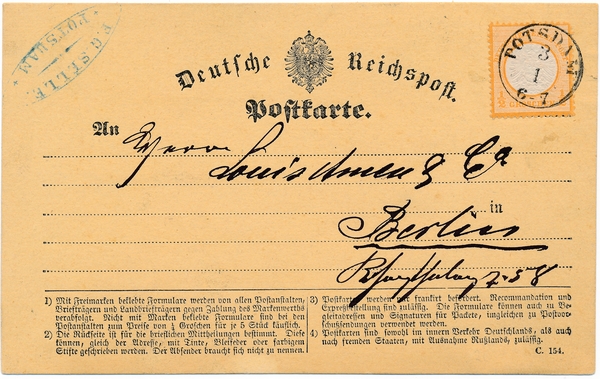 P. G. SELLE
POTSDAM
Deutsche Reichspost.
Postkarte.
POTSDAM
3
1
6-7
An
Herrn
Louis & Co
in
Berlin
58
1) Mit Freimarken beklebte Formulare werden von allen Postanstalten,
Briefträgern und Landbriefträgern gegen Zahlung des Markenwerths
verabfolgt. Nicht mit Marken beklebte Formulare sind bei den
Postanstalten zum Preise von ¼ Groschen für je 5 Stück käuflich.
2) Die Rückseite ist für die brieflichen Mittheilungen bestimmt. Diese
können, gleich der Adresse, mit Tinte, Bleifeder oder farbigem
Stifte geschrieben werden. Der Absender braucht sich nicht zu nennen.
3) Postkarten werden nur frankirt befördert. Recommandation und
Expreßbestellung sind zulässig. Die Formulare können auch zu Be-
gleitadressen und Signaturen für Packete, imgleichen zu Postvor-
schußsendungen verwendet werden.
4) Postkarten sind sowohl im innern Verkehr Deutschlands, als auch
nach fremden Staaten, mit Ausnahme Rußlands, zulässig.
C. 154.